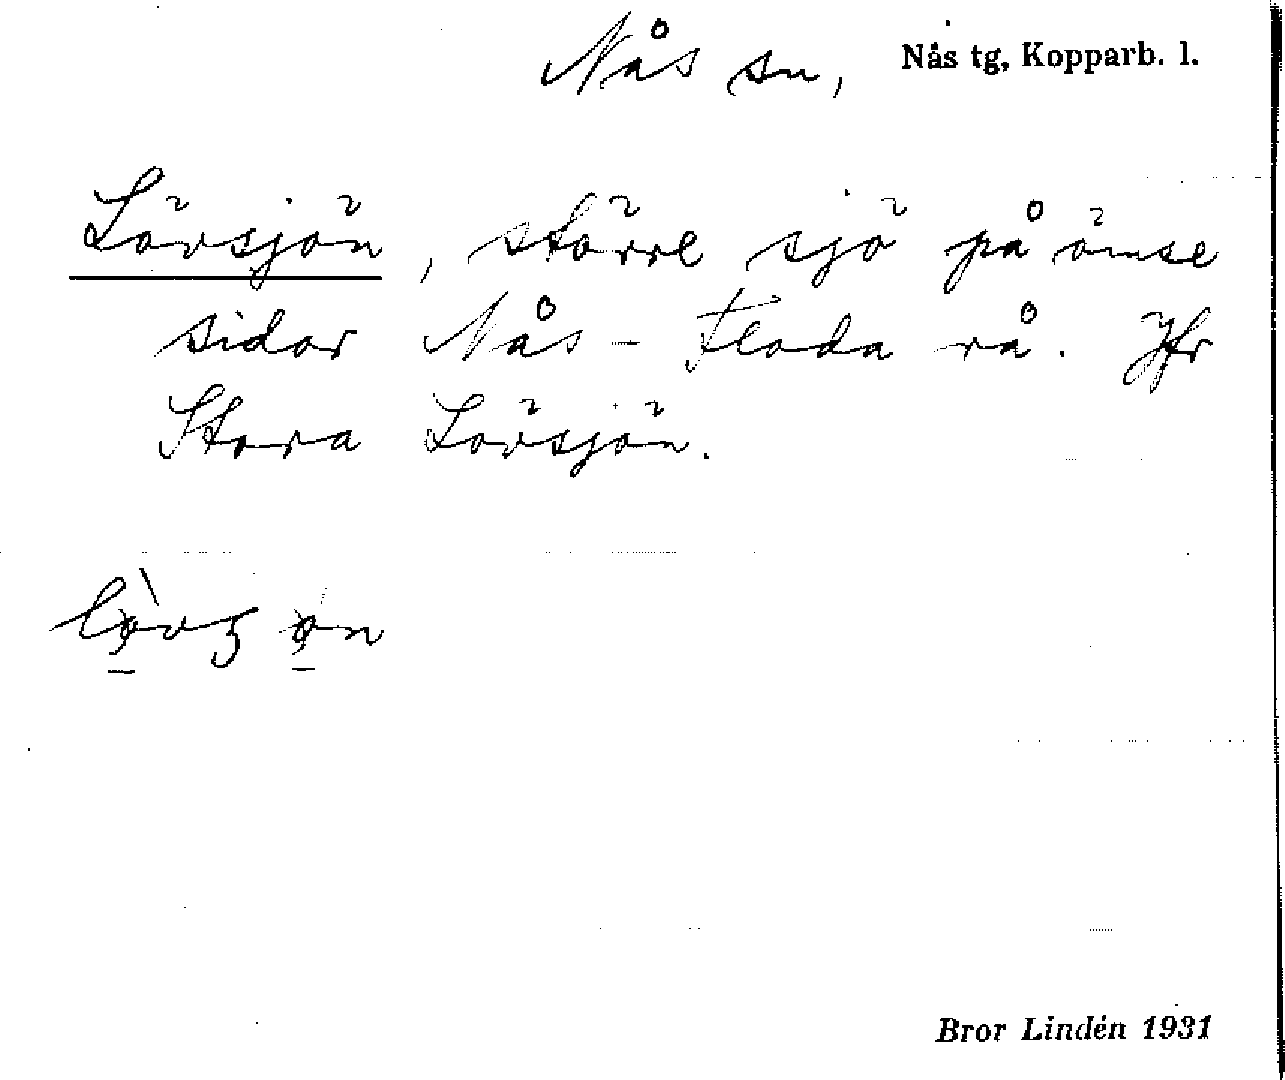 Nås sn, Nås tg, Kopparb. l.
Lövsjön, större sjö på ömse
sidor Nås - Floda rå. Jfr
Stora Lövsjön.
Bror Lindén 1931